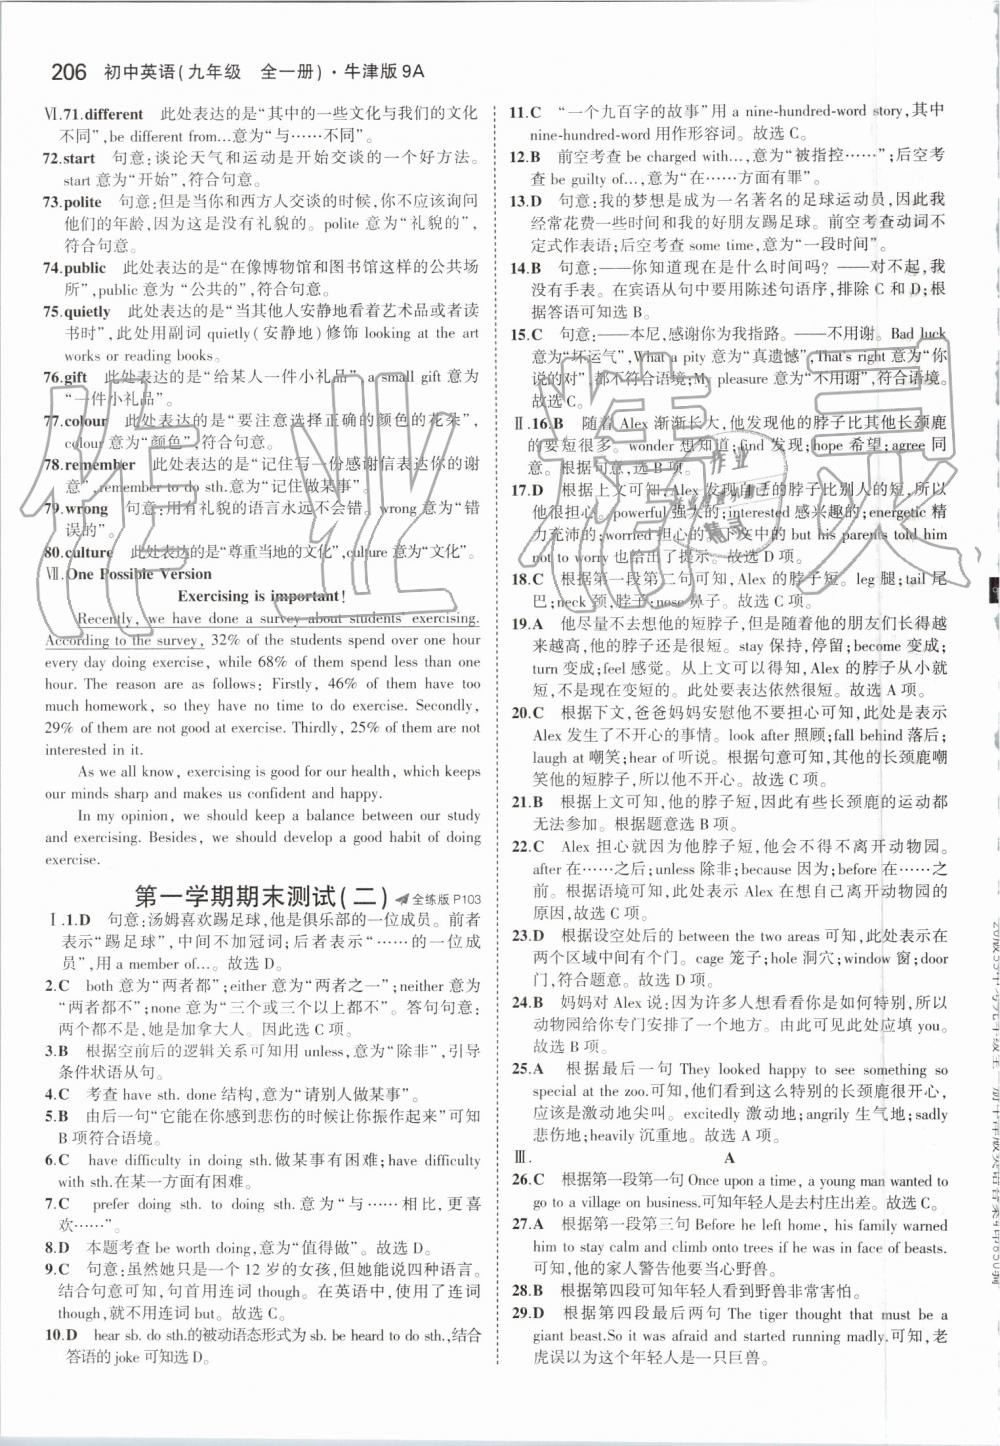 206 初中英语(九年级 全一册)·牛津版9A
Ⅵ.71.different 此处表达的是“其中的一些文化与我们的文化
不同”,be different from…意为“与……不同”。
72.start 句意:谈论天气和运动是开始交谈的一个好方法。
start 意为“开始”,符合句意。
73.polite 句意:但是当你和西方人交谈的时候,你不应该询问
他们的年龄,因为这是没有礼貌的。polite 意为“有礼貌的”,
符合句意。
74.public 此处表达的是“在像博物馆和图书馆这样的公共场
所”,public 意为 “公共的”,符合句意。
75.quietly 此处表达的是“当其他人安静地看着艺术品或者读
书时”,此处用副词 quietly(安静地)修饰 looking at the art
works or reading books。
76.gift 此处表达的是“给某人一件小礼品”,a small gift 意为
“一件小礼品”。
77.colour 此处表达的是“要注意选择正确的颜色的花朵”,
colour 意为“颜色”,符合句意。
78.remember 此处表达的是“记住写一份感谢信表达你的谢
意”,remember to do sth.意为“记住做某事”。
79.wrong 句意:用有礼貌的语言永远不会错。wrong 意为“错
误的”。
80.culture 此处表达的是“尊重当地的文化”,culture 意为“文化”。
Ⅶ.One Possible Version
Exercising is important!
Recently, we have done a survey about students' exercising.
According to the survey, 32% of the students spend over one hour
every day doing exercise, while 68% of them spend less than one
hour. The reason are as follows: Firstly, 46% of them have too
much homework, so they have no time to do exercise. Secondly,
29% of them are not good at exercise. Thirdly, 25% of them are not
interested in it.
As we all know, exercising is good for our health, which keeps
our minds sharp and makes us confident and happy.
In my opinion, we should keep a balance between our study
and exercising. Besides, we should develop a good habit of doing
exercise.
第一学期期末测试(二) 全练版 P103
Ⅰ.1.D 句意:汤姆喜欢踢足球,他是俱乐部的一位成员。前者
表示“踢足球”,中间不加冠词;后者表示“……的一位成
员”,用 a member of…。故选 D。
2.C both 意为“两者都”;either 意为“两者之一”;neither 意为
“两者都不”;none 意为“三个或三个以上都不”。答句句意:
两个都不是,她是加拿大人。因此选 C。
3.B 根据空前后的逻辑关系可知用 unless,意为“除非”,引导
条件状语从句。
4.C 考查 have sth. done 结构,意为“请别人做某事”。
5.B 由后一句“它能在你感到悲伤的时候让你振作起来”可知
B 项符合语境。
6.C have difficulty in doing sth.做某事有困难;have difficulty
with sth.在某一方面有困难。
7.C prefer doing sth. to doing sth.意为“与……相比,更喜
欢……”。
8.D 本题考查 be worth doing,意为“值得做”。故选 D。
9.C 句意:虽然她只是一个 12 岁的女孩,但她能说四种语言。
结合句意可知,句首用连词 though。在英语中,使用了连词
though,就不用连词 but。故选 C。
10.D hear sb. do sth.的被动语态形式为 sb. be heard to do sth.,结合
答语的 joke 可知选 D。
11.C “一个九百字的故事”用 a nine-hundred-word story,其中
nine-hundred-word 用作形容词。故选 C。
12.B 前空考查 be charged with…,意为“被指控……”;后空考
查 be guilty of…,意为“在……方面有罪”。
13.D 句意:我的梦想是成为一名著名的足球运动员,因此我
经常花费一些时间和我的好朋友踢足球。前空考查动词不
定式作表语;后空考查 some time,意为“一段时间”。
14.B 句意:——你知道现在是什么时间吗? ——对不起,我
没有手表。在宾语从句中要用陈述句语序,排除 C 和 D;根
据答语可知选 B。
15.C 句意:——本尼,感谢你为我指路。——不用谢。Bad luck
意为“坏运气”,What a pity 意为“真遗憾”,That's right 意为“你
说的对”,都不符合语境;My pleasure 意为“不用谢”,符合语境。
故选 C。
Ⅱ.16.B 随着 Alex 渐渐长大,他发现他的脖子比其他长颈鹿
的要短很多。wonder 想知道;find 发现;hope 希望;agree 同
意。根据句意,选 B 项。
17.D 根据上文可知,Alex 发现自己的脖子比别人的短,所以
他很担心。powerful 强大的;interested 感兴趣的;energetic 精
力充沛的;worried 担心的。下文中的 but his parents told him
not to worry 也给出了提示。故选 D 项。
18.C 根据第一段第二句可知,Alex 的脖子短。leg 腿;tail 尾
巴;neck 颈,脖子;nose 鼻子。故选 C 项。
19.A 他尽量不去想他的短脖子,但是随着他的朋友们长得越
来越高,他的脖子还是很短。stay 保持,停留;become 变成;
turn 变成;feel 感觉。从上文可以得知,Alex 的脖子从小就
短,不是现在变成的。此处要表达依然很短。故选 A 项。
20.C 根据下文,爸爸妈妈安慰他不要担心可知,此处是表示
Alex 发生了不开心的事情。look after 照顾;fall behind 落后;
laugh at 嘲笑;hear of 听说。根据句意可知,其他的长颈鹿嘲
笑他的短脖子,所以他不开心。故选 C 项。
21.B 根据上文可知,他的脖子短,因此有些长颈鹿的运动都
无法参加。根据题意选 B 项。
22.C Alex 担心就因为他脖子短,他会不得不离开动物园。
after 在……之后;unless 除非;because 因为;before 在……之
前。根据语境可知,此处表示 Alex 在想自己离开动物园的
原因,故选 C 项。
23.D 根据设空处后的 between the two areas 可知,此处表示在
两个区域中间有个门。cage 笼子;hole 洞穴;window 窗;door
门,符合题意。故选 D 项。
24.B 妈妈对 Alex 说:因为许多人想看看你是如何特别,所以
动物园给你专门安排了一个地方。由此可见此处应填 you。
故选 B 项。
25.A 根据最后一句 They looked happy to see something so
special at the zoo.可知,他们看到这么特别的长颈鹿很开心,
应该是激动地尖叫。excitedly 激动地;angrily 生气地;sadly
悲伤地;heavily 沉重地。故选 A 项。
Ⅲ. A
26.C 根据第一段第一句 Once upon a time, a young man wanted to
go to a village on business.可知年轻人是去村庄出差。故选 C。
27.A 根据第一段第三句 Before he left home, his family warned
him to stay calm and climb onto trees if he was in face of beasts.
可知,他的家人警告他要当心野兽。
28.B 根据第四段可知年轻人看到野兽非常害怕。
29.D 根据第四段最后两句 The tiger thought that must be a
giant beast.So it was afraid and started running madly.可知,老
虎误以为这个年轻人是一只巨兽。
作业精灵
作业
精灵